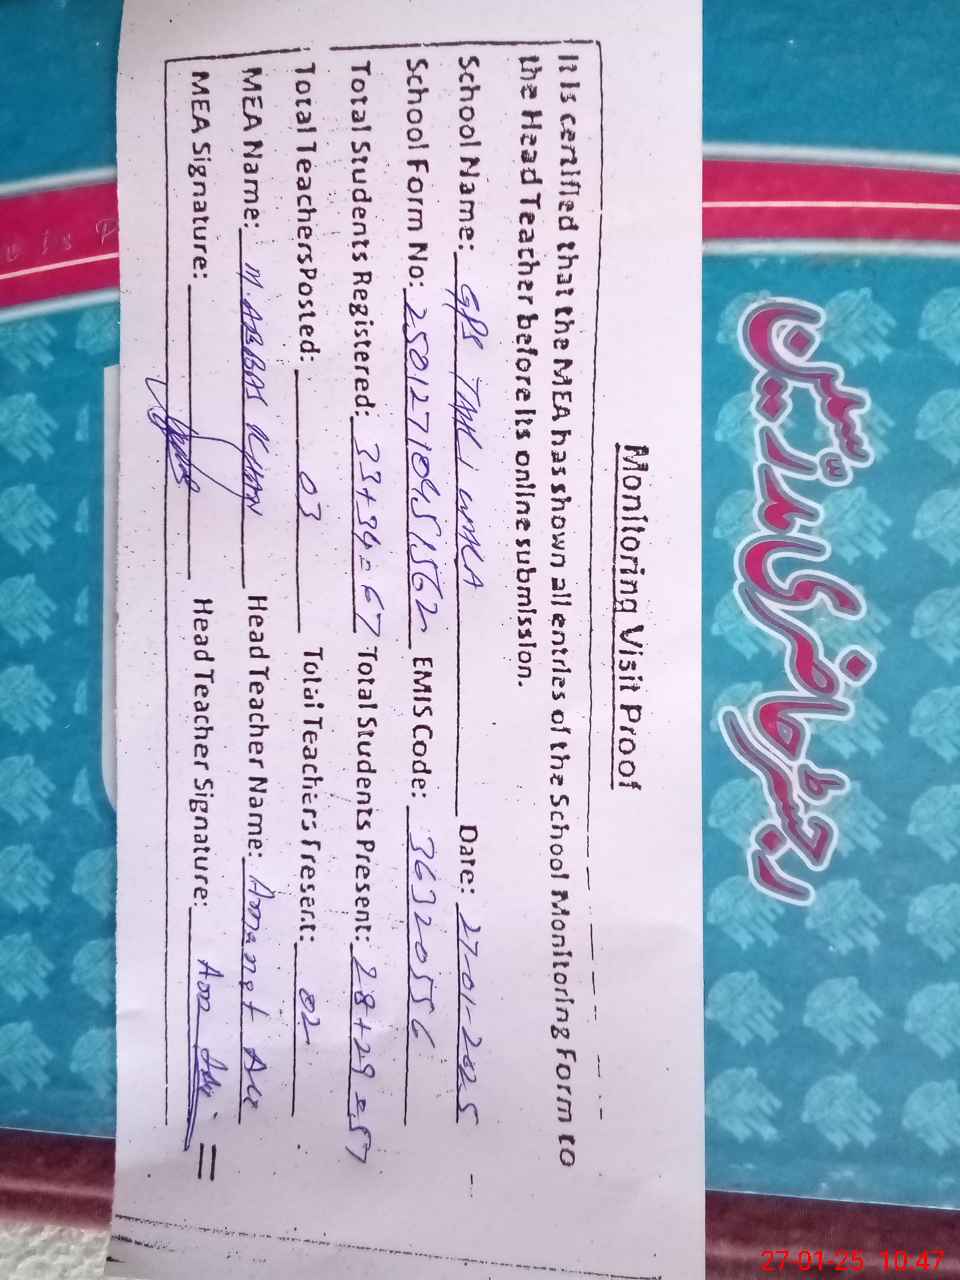 رجسٹر حاضری مدرسین
Monitoring Visit Proof
It is certified that the MEA has shown all entries of the School Monitoring Form to
the Head Teacher before its online submission.
School Name: GPS TAKI Date: 27-01-2025
School Form No: EMIS Code: 36320556
Total Students Registered: 33+34=67 Total Students Present: 28+29=57
Total Teachers Posted: 03 Total Teachers Present: 02
MEA Name: M. ABBAS KHAN Head Teacher Name: Amanat Ali
MEA Signature: Head Teacher Signature:
27-01-25 10:47